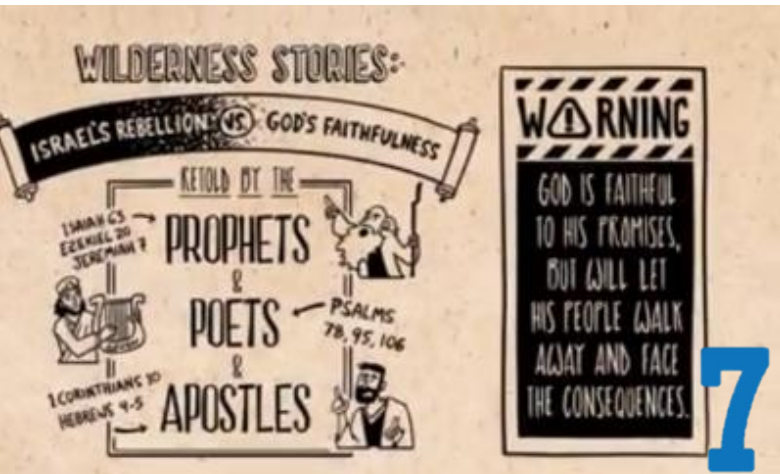 WILDERNESS STORIES:
ISRAEL'S REBELLION VS GOD'S FAITHFULNESS
RETOLD BY THE
ISAIAH 63
EZEKIEL 20
JEREMIAH 7
PROPHETS
&
POETS
PSALMS
78, 95, 106
&
1 CORINTHIANS 10
HEBREWS 4-5
APOSTLES
WARNING
GOD IS FAITHFUL
TO HIS PROMISES,
BUT WILL LET
HIS PEOPLE WALK
AWAY AND FACE
THE CONSEQUENCES.
7